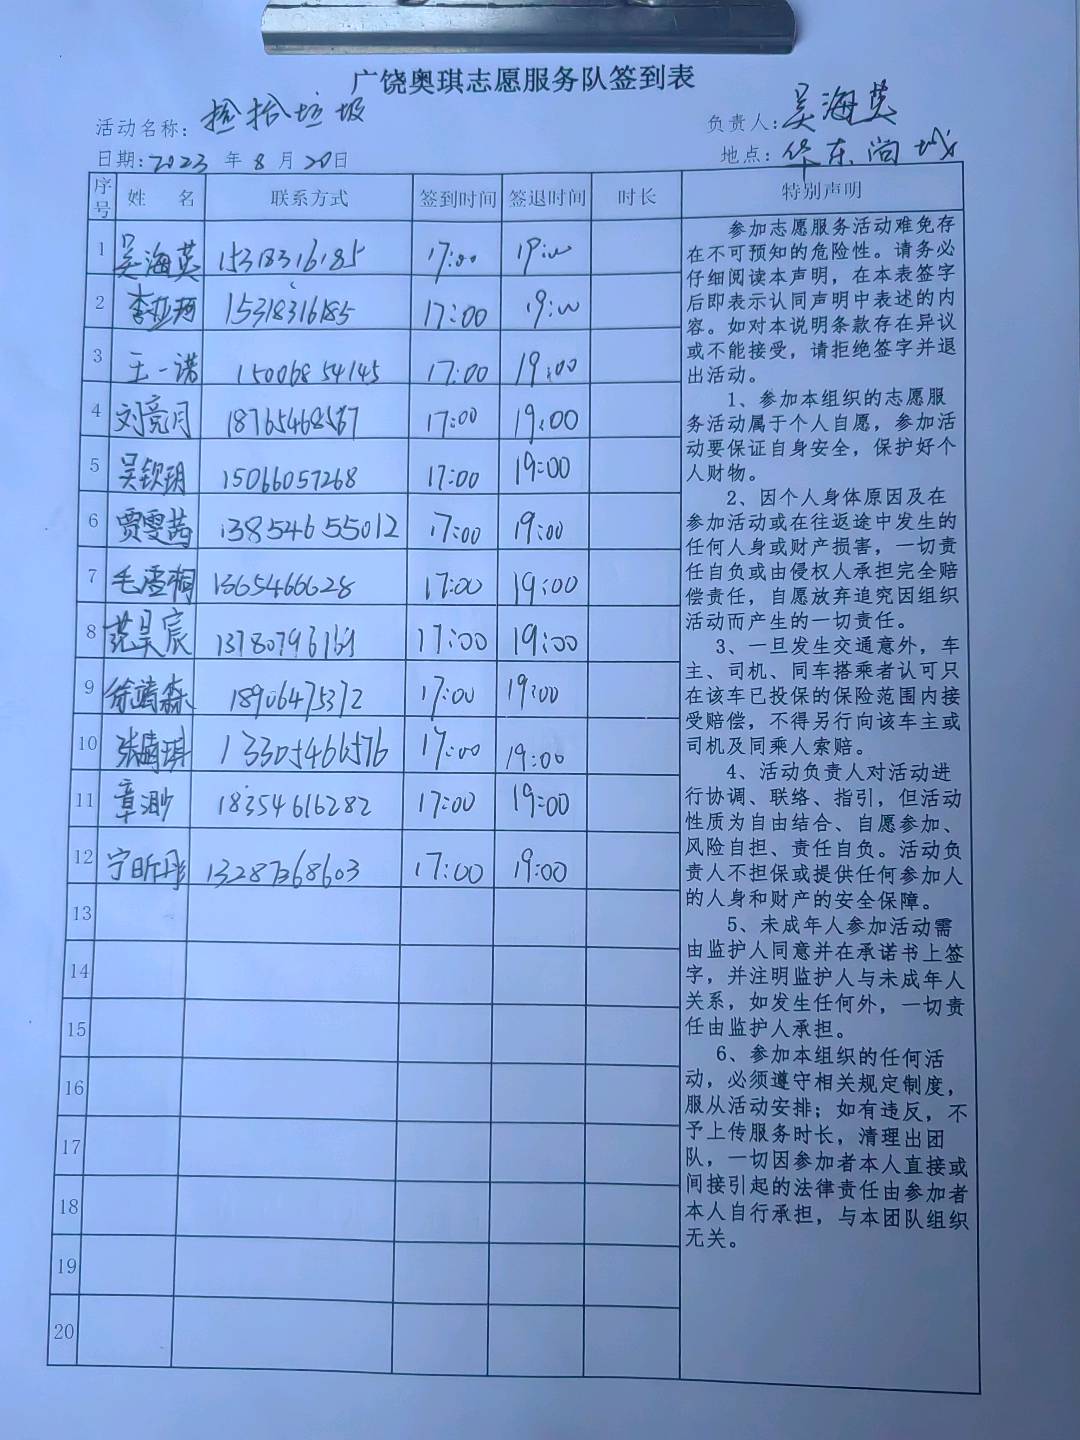 广饶奥琪志愿服务队签到表
活动名称: 捡拾垃圾 负责人: 吴海英
日期: 2023 年 8 月 20 日 地点: 华东尚城
序号 姓 名 联系方式 签到时间 签退时间 时长 特别声明
1 吴海英 15318316185 17:00 19:00
2 李亚珂 15318316185 17:00 19:00
3 王一诺 15006854145 17:00 19:00
4 刘亮月 18765468567 17:00 19:00
5 吴钦玥 15066057268 17:00 19:00
6 贾雯茜 13854655012 17:00 19:00
7 毛雪桐 1365466628 17:00 19:00
8 范昊宸 17:00 19:00
9 徐靖森 18906475372 17:00 19:00
10 13305466576 17:00 19:00
11 章渺 18354616282 17:00 19:00
12 宁昕彤 13287368603 17:00 19:00
13
14
15
16
17
18
19
20
参加志愿服务活动难免存
在不可预知的危险性。请务必
仔细阅读本声明，在本表签字
后即表示认同声明中表述的内
容。如对本说明条款存在异议
或不能接受，请拒绝签字并退
出活动。
1、参加本组织的志愿服
务活动属于个人自愿，参加活
动要保证自身安全，保护好个
人财物。
2、因个人身体原因及在
参加活动或在往返途中发生的
任何人身或财产损害，一切责
任自负或由侵权人承担完全赔
偿责任，自愿放弃追究因组织
活动而产生的一切责任。
3、一旦发生交通意外，车
主、司机、同车搭乘者认可只
在该车已投保的保险范围内接
受赔偿，不得另行向该车主或
司机及同乘人索赔。
4、活动负责人对活动进
行协调、联络、指引，但活动
性质为自由结合、自愿参加、
风险自担、责任自负。活动负
责人不担保或提供任何参加人
的人身和财产的安全保障。
5、未成年人参加活动需
由监护人同意并在承诺书上签
字，并注明监护人与未成年人
关系，如发生任何外，一切责
任由监护人承担。
6、参加本组织的任何活
动，必须遵守相关规定制度，
服从活动安排；如有违反，不
予上传服务时长，清理出团
队，一切因参加者本人直接或
间接引起的法律责任由参加者
本人自行承担，与本团队组织
无关。